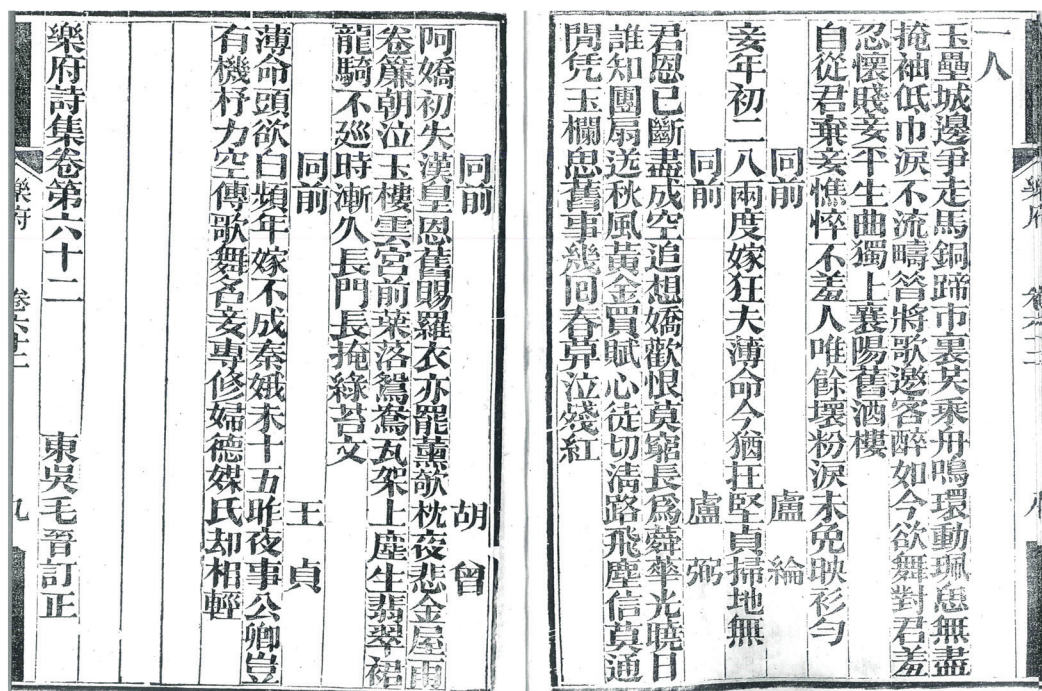 一八
玉壘城邊爭走馬銅蹄巿裏共乘舟鳴環動珮恩無盡
掩袖低巾淚不流疇昔將歌邀客醉如今欲舞對君羞
忍懷賤妾平生曲獨上襄陽舊酒樓
自從君棄妾憔悴不羞人唯餘壞粉淚未免映衫勻
同前 盧綸
妾年初二八兩度嫁狂夫薄命今猶在堅貞掃地無
同前 盧弼
君恩已斷盡成空追想嬌歡恨莫窮長爲蕣華光曉日
誰知團扇送秋風黃金買賦心徒切淸路飛塵信莫通
閒凭玉欄思舊事幾回春暮泣殘紅
樂府 卷六十二 八
同前 胡曾
阿嬌初失漢皇恩舊賜羅衣亦罷薰欹枕夜悲金屋雨
卷簾朝泣玉樓雲宮前葉落鴛鴦瓦架上塵生翡翠裙
龍騎不巡時漸久長門長掩綠苔文
同前 王貞
薄命頭欲白頻年嫁不成秦娥未十五昨夜事公卿豈
有機杼力空傳歌舞名妾專修婦德媒氏却相輕
樂府詩集卷第六十二 東吳毛晉訂正
樂府 卷六十二 九